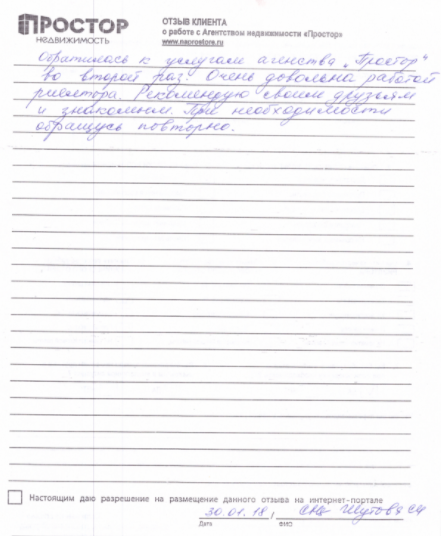 ПРОСТОР
НЕДВИЖИМОСТЬ
ОТЗЫВ КЛИЕНТА
о работе с Агентством недвижимости «Простор»
www.naprostore.ru
Обратилась к услугам агенства „Простор"
во второй раз. Очень довольна работой
риелтора. Рекомендую своим друзьям
и знакомым. При необходимости
обращусь повторно.
Настоящим даю разрешение на размещение данного отзыва на интернет-портале
30.01.18 /
Дата
ФИО